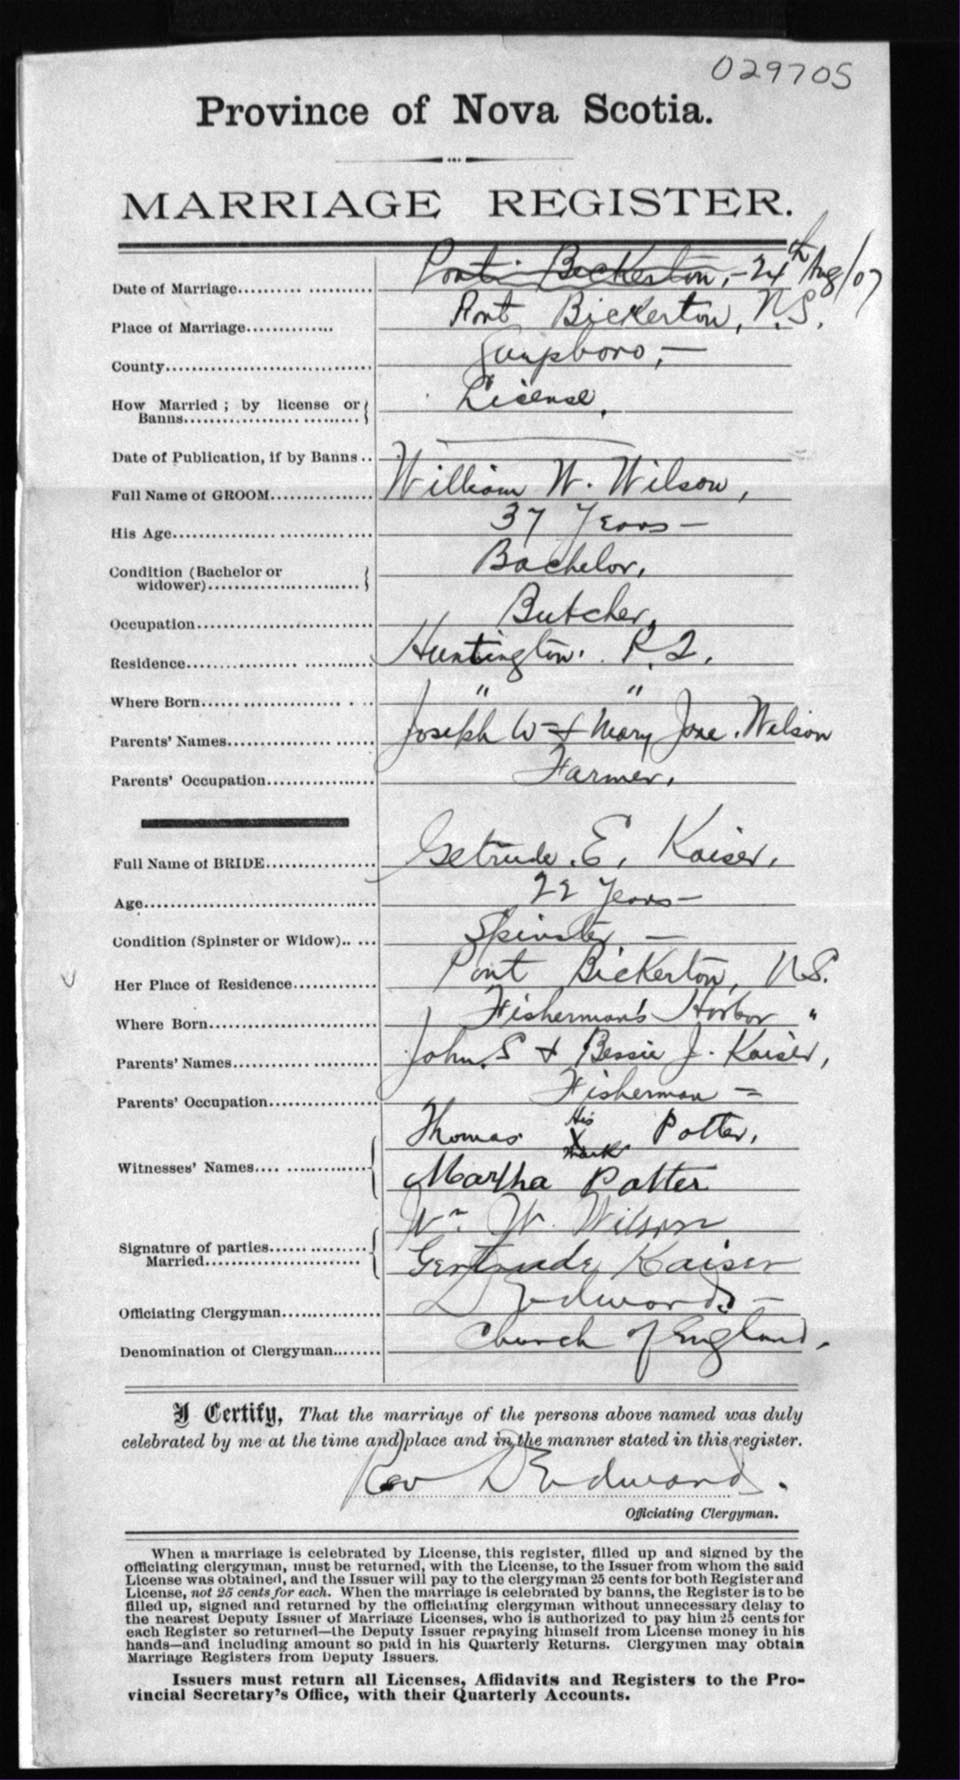 029705
Province of Nova Scotia.
MARRIAGE REGISTER.
Date of Marriage.......... Port Bickerton, - 24th Aug/07
Place of Marriage............. Port Bickerton, N.S.
County................................ Guysboro, —
How Married ; by license or
Banns........................... License.
Date of Publication, if by Banns .. —
Full Name of GROOM................ William W. Wilson,
His Age............................... 37 Years —
Condition (Bachelor or
widower)........................ Bachelor,
Occupation............................ Butcher,
Residence............................. Huntington.
Where Born............................ " "
Parents' Names........................ Joseph W & Mary Jane. Wilson
Parents' Occupation................. Farmer.
Full Name of BRIDE................. Getrude. E. Kaiser.
Age.................................... 22 Years —
Condition (Spinster or Widow).. .... Spinster —
Her Place of Residence............. Port Bickerton, N.S.
Where Born............................ Fisherman's Harbor "
Parents' Names........................ John. S & Bessie J. Kaiser,
Parents' Occupation................. Fisherman =
Thomas His X mark Potter,
Witnesses' Names.... ..............
Martha Potter
Wm W. Wilson
Signature of parties...................
Married............................
Gertrude Kaiser
Officiating Clergyman............... D Edwards. —
Denomination of Clergyman........ Church of England.
I Certify, That the marriage of the persons above named was duly
celebrated by me at the time and place and in the manner stated in this register.
Rev D Edwards.
Officiating Clergyman.
When a marriage is celebrated by License, this register, filled up and signed by the
officiating clergyman, must be returned, with the License, to the Issuer from whom the said
License was obtained, and the Issuer will pay to the clergyman 25 cents for both Register and
License, not 25 cents for each. When the marriage is celebrated by banns, the Register is to be
filled up, signed and returned by the officiating clergyman without unnecessary delay to
the nearest Deputy Issuer of Marriage Licenses, who is authorized to pay him 25 cents for
each Register so returned—the Deputy Issuer repaying himself from License money in his
hands—and including amount so paid in his Quarterly Returns. Clergymen may obtain
Marriage Registers from Deputy Issuers.
Issuers must return all Licenses, Affidavits and Registers to the Pro-
vincial Secretary's Office, with their Quarterly Accounts.